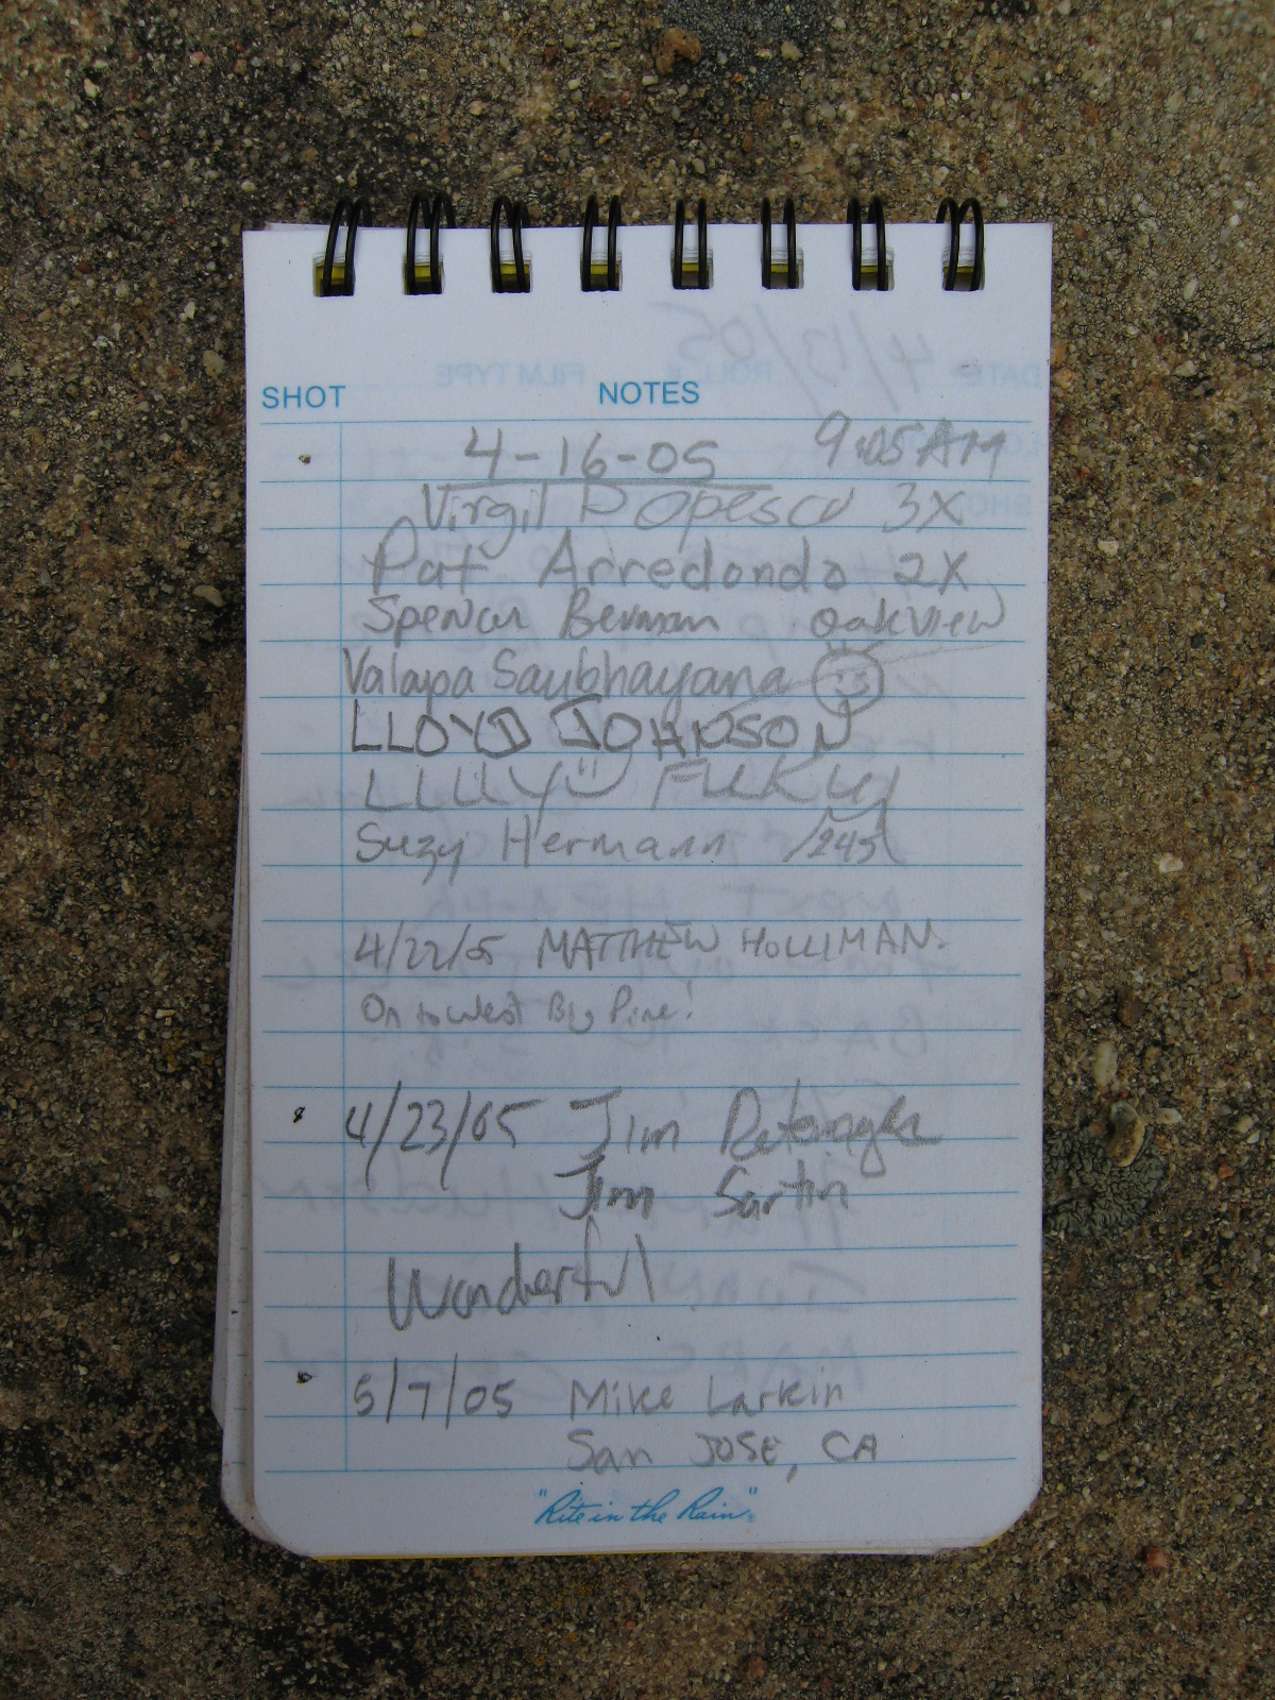 SHOT NOTES
4-16-05 9:05AM
Virgil Popescu 3X
Pat Arredondo 2X
Spencer Berman Oakview
Valaya Saubhayana
LLOYD JOHNSON
LILLY FUKUI
Suzy Hermann
4/22/05 MATTHEW HOLLIMAN.
On to West Big Pine!
4/23/05 Jim
Jim Sartin
Wonderful
5/7/05 Mike Larkin
San JOSE, CA
"Rite in the Rain"